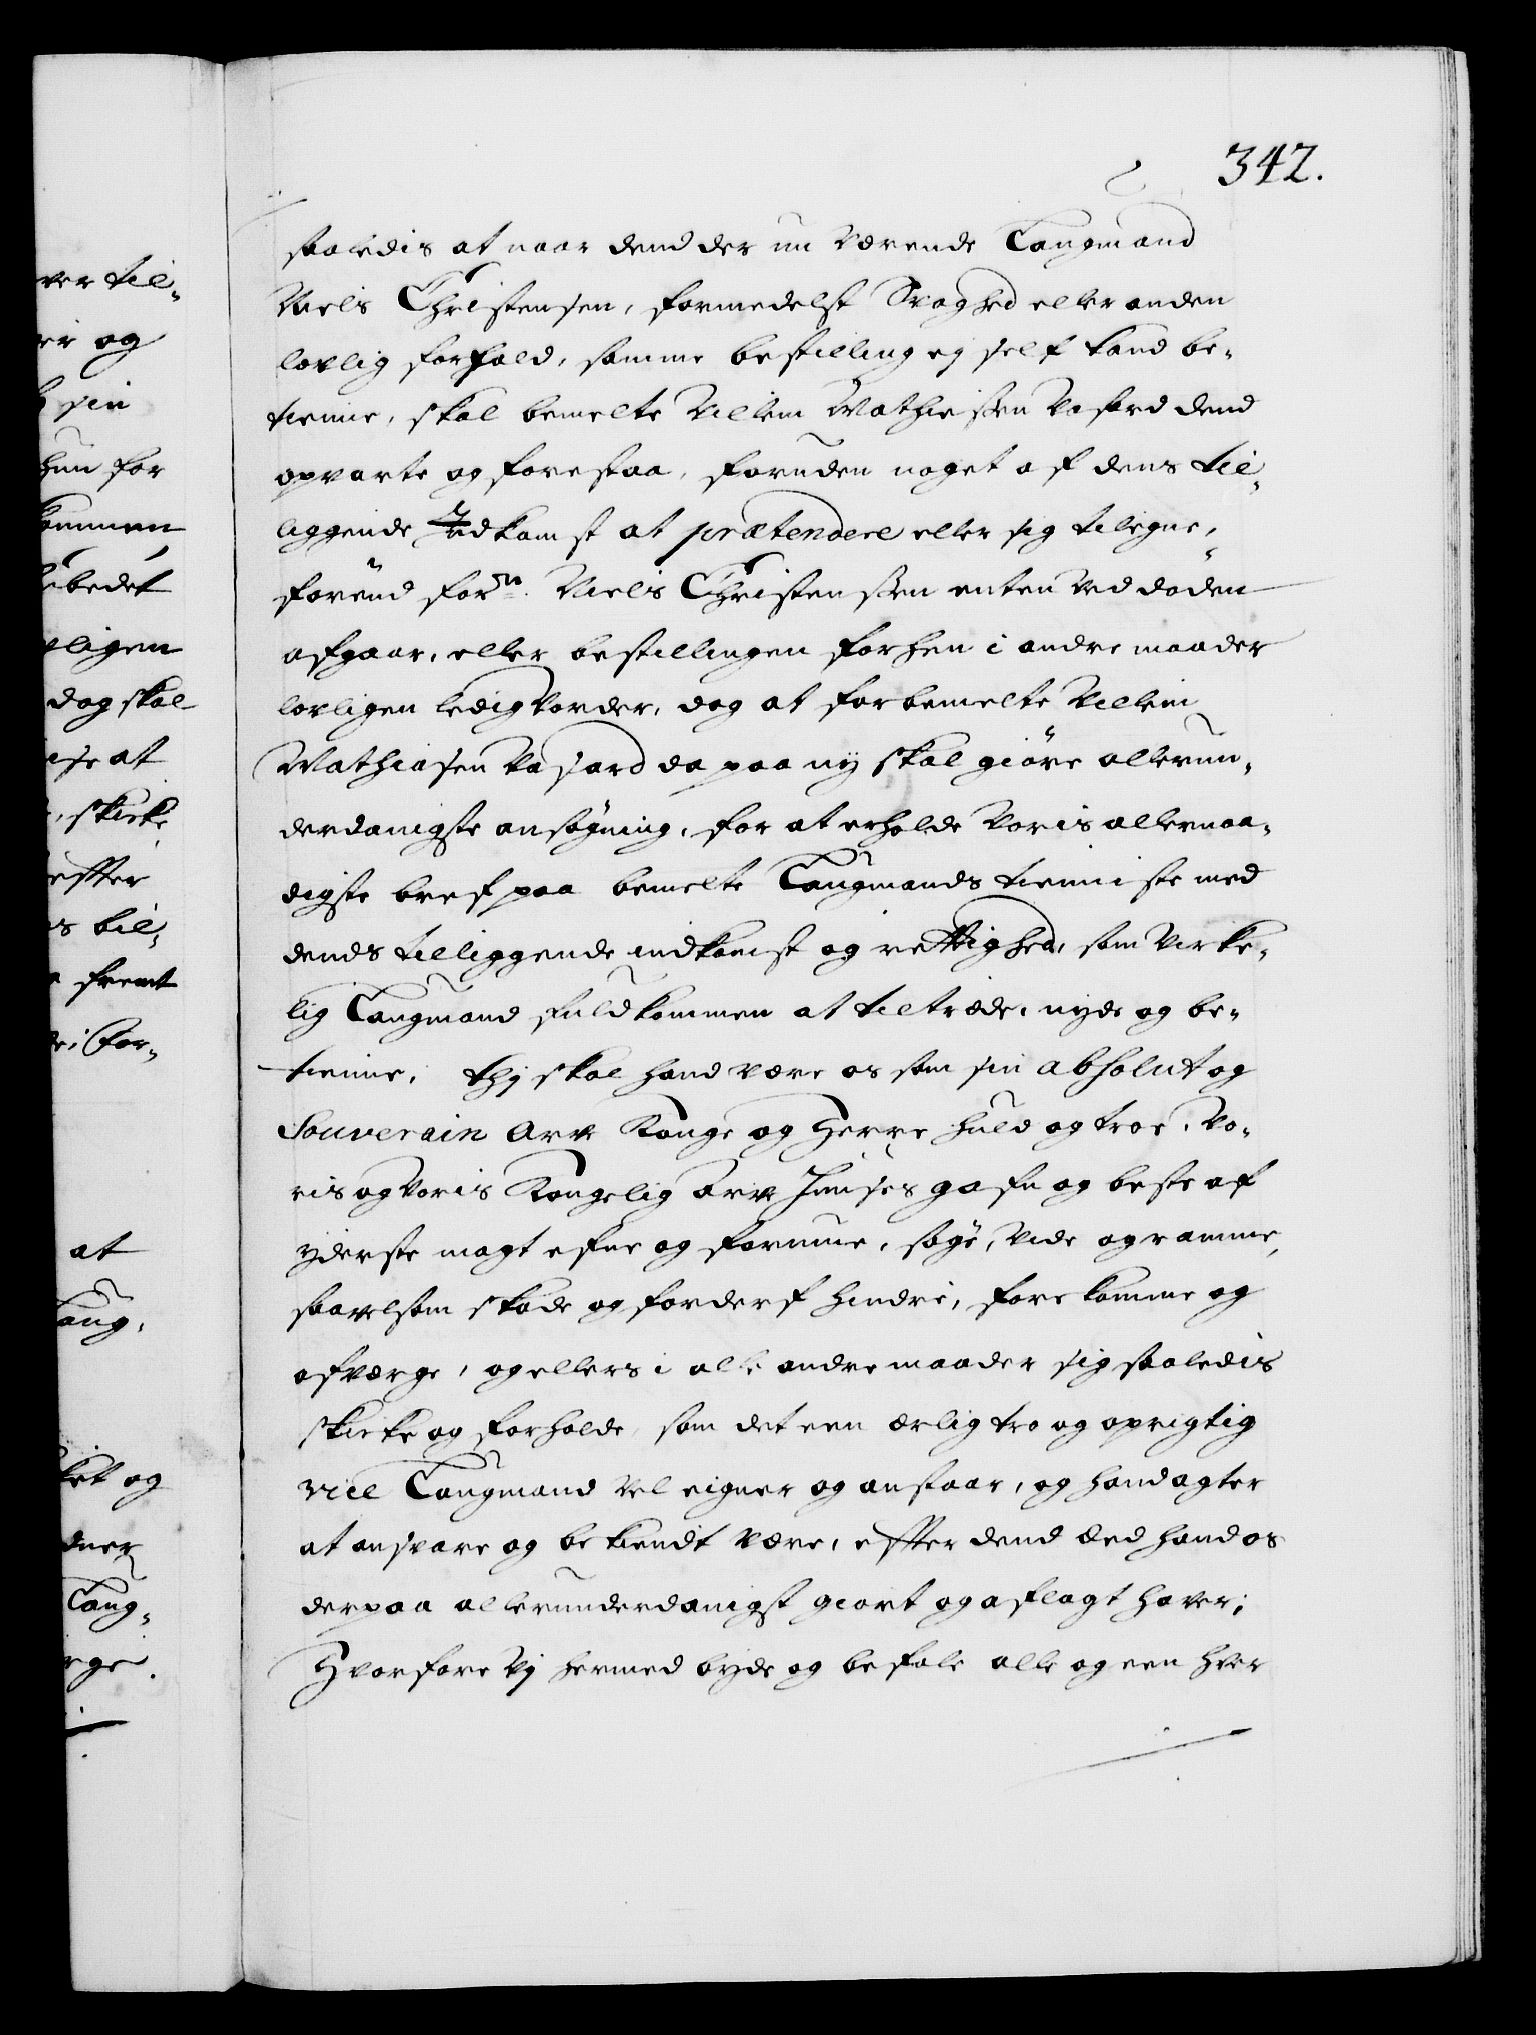 342.
saaledis at naar dend der nu værende Laugmand
Niels Christensen, formedelst Svaghed eller anden
lovlig forfald, samme bestilling ej self kand be-
tienne, skal bemelte Villem Mathiesen Vasard dend
opvarte og forestaa, foruden noget af dens til-
liggende Indkomst at prætendere eller sig tilegne,
førend forn. Niels Christenssen enten ved døden
afgaar, eller bestillingen forhen i andre maader
lovligen ledig vorder, dog at forbemelte Villem
Mathiasen Vasard da paa ny skal giøre allerun-
derdanigste ansøgning, for at erholde Voris allernaa-
digste bref paa bemelte Laugmands tienniste med
dends tilliggende indkomst og rettighed, som virke-
lig Laugmand fuldkommen at tiltræde, nyde og be-
tienne, thj skal hand være os som sin absolut og
Souverain Arve Konge og Herre huld og troe, Vo-
ris og Voris Kongelig Arve Huuses gafn og beste af
yderste magt efne og formue, søge, vide og ramme,
saavelsom skade og forderf hindre, forekomme og
afværge, og ellers i alle andre maader sig saaledis
skicke og forholde, som det een ærlig tro og oprigtig
vice Laugmand vel eigner og anstaar, og hand agter
at ansvare og bekiendt være, effter dend Æed hand os
derpaa allerunderdanigst giort og aflagt haver;
Hvorfore Vj hermed byde og befale alle og een hver
ver til-
er og
sin
hun for
kommen
bedet
ligen
dog skal
at
, skicke
effter
til-
fremt
for-
at
Laug-
ket og
Laug-